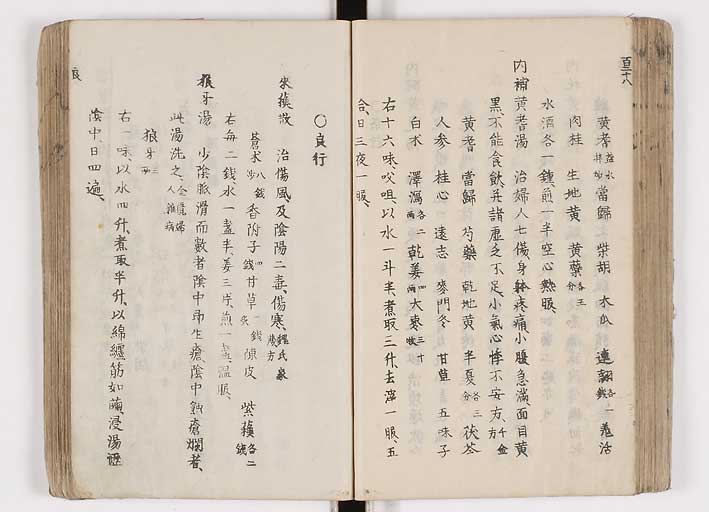 百十八
黄耆 當歸 柴胡 木瓜 連翹各一錢 羌活
肉桂 生地黄 黄蘗各三分
水酒各一鍾煎一半空心熱服
内補黄耆湯 治婦人七傷身躰疼痛小腹急滿面目黄
黒不能食飲并諸虚乏不足小氣心悸不安方千金
黄耆 當歸 芍藥 乾地黄 半夏各三分 茯苓
人参 桂心 遠志 麥門冬 甘草 五味子
白朮 澤瀉各二兩 乾姜四兩 大棗三十枚
右十六味㕮咀以水一斗半煮取三升去滓一服五
合日三夜一服
〇良行
來蘓散 治傷風及陰陽二毒傷寒
蒼朮八錢 香附子四錢 甘草一錢炙 陳皮 紫蘓各二錢
右每二錢水一盞半姜三片煎一盞温服
狼牙湯 少陰脉滑而數者陰中即生瘡陰中蝕瘡爛者
此湯洗之金匱婦人雜病
狼牙三兩
右一味以水四升煮取半升以綿纏筋如繭浸湯瀝
陰中日四遍
良